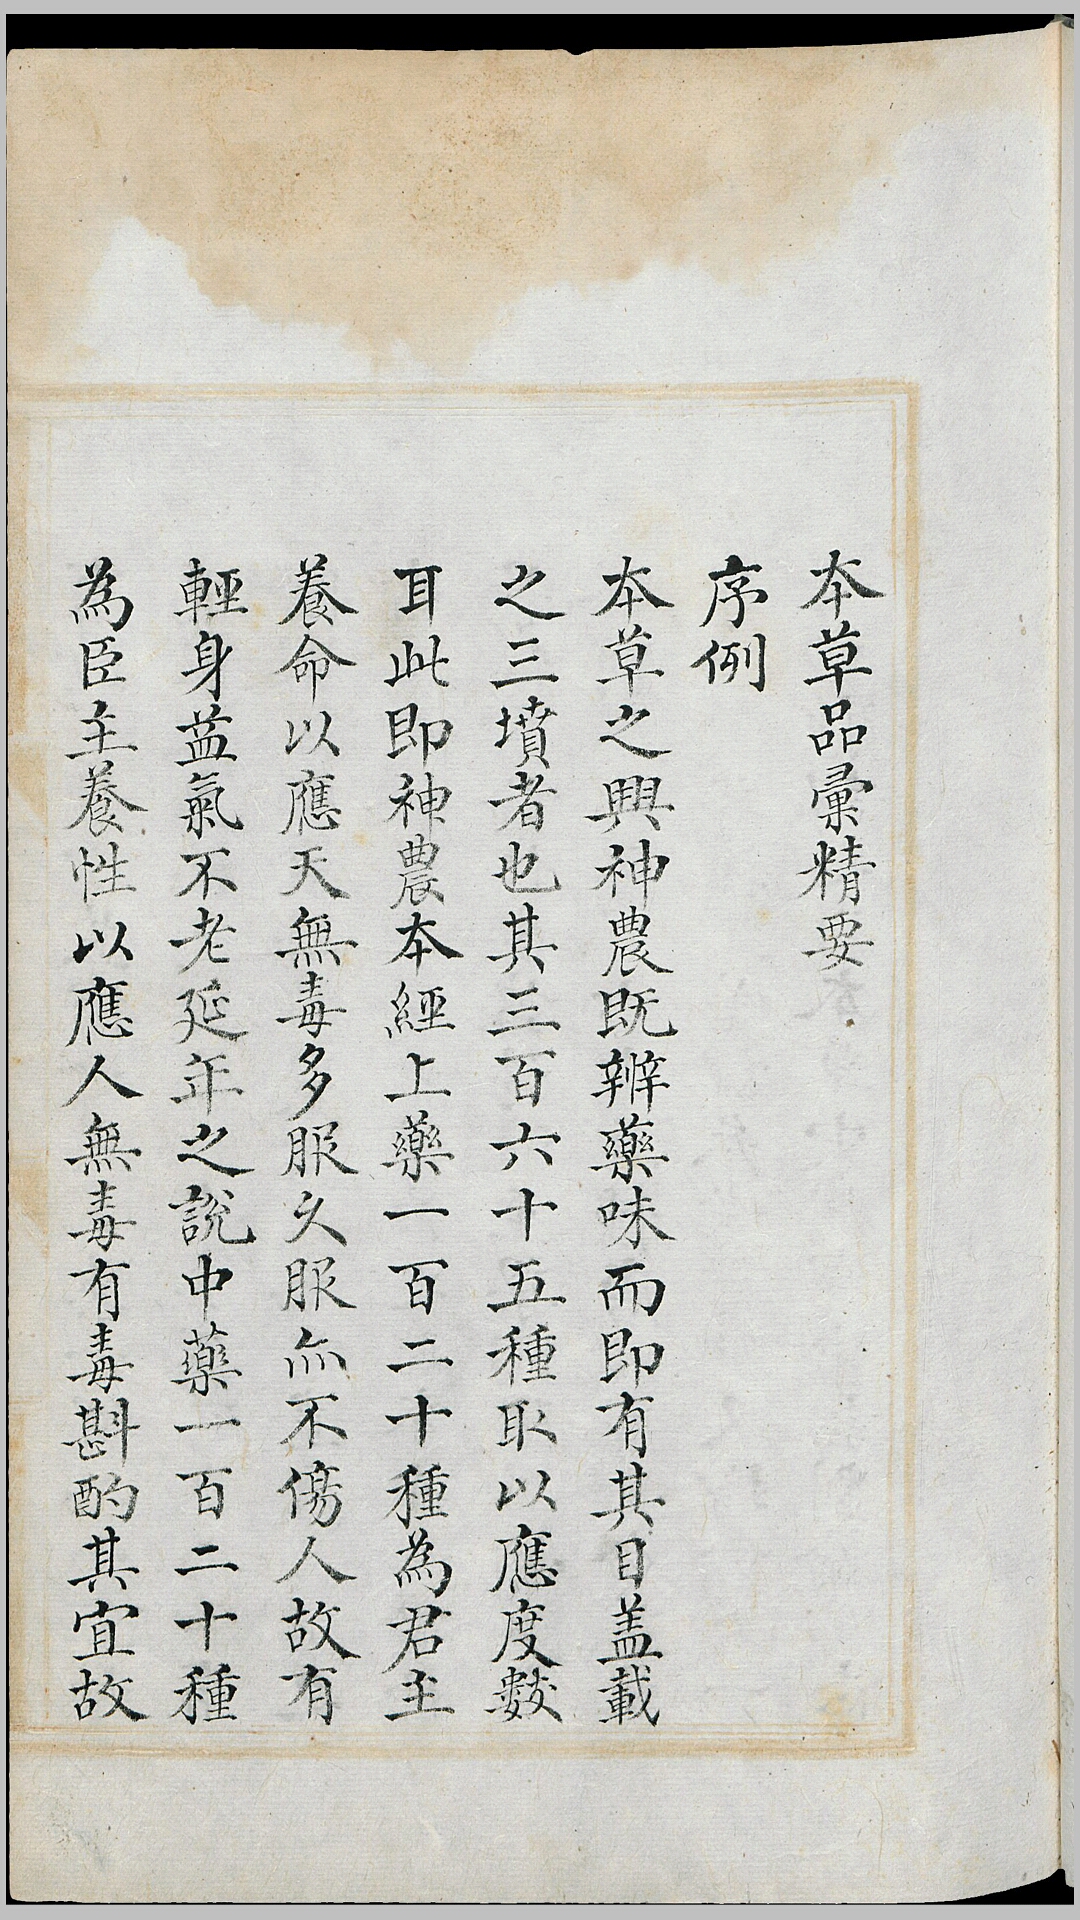 本草品彙精要
序例
本草之興神農既辨藥味而即有其目盖載
之三墳者也其三百六十五種取以應度數
耳此即神農本經上藥一百二十種為君主
養命以應天無毒多服久服亦不傷人故有
輕身益氣不老延年之說中藥一百二十種
為臣主養性以應人無毒有毒斟酌其宜故